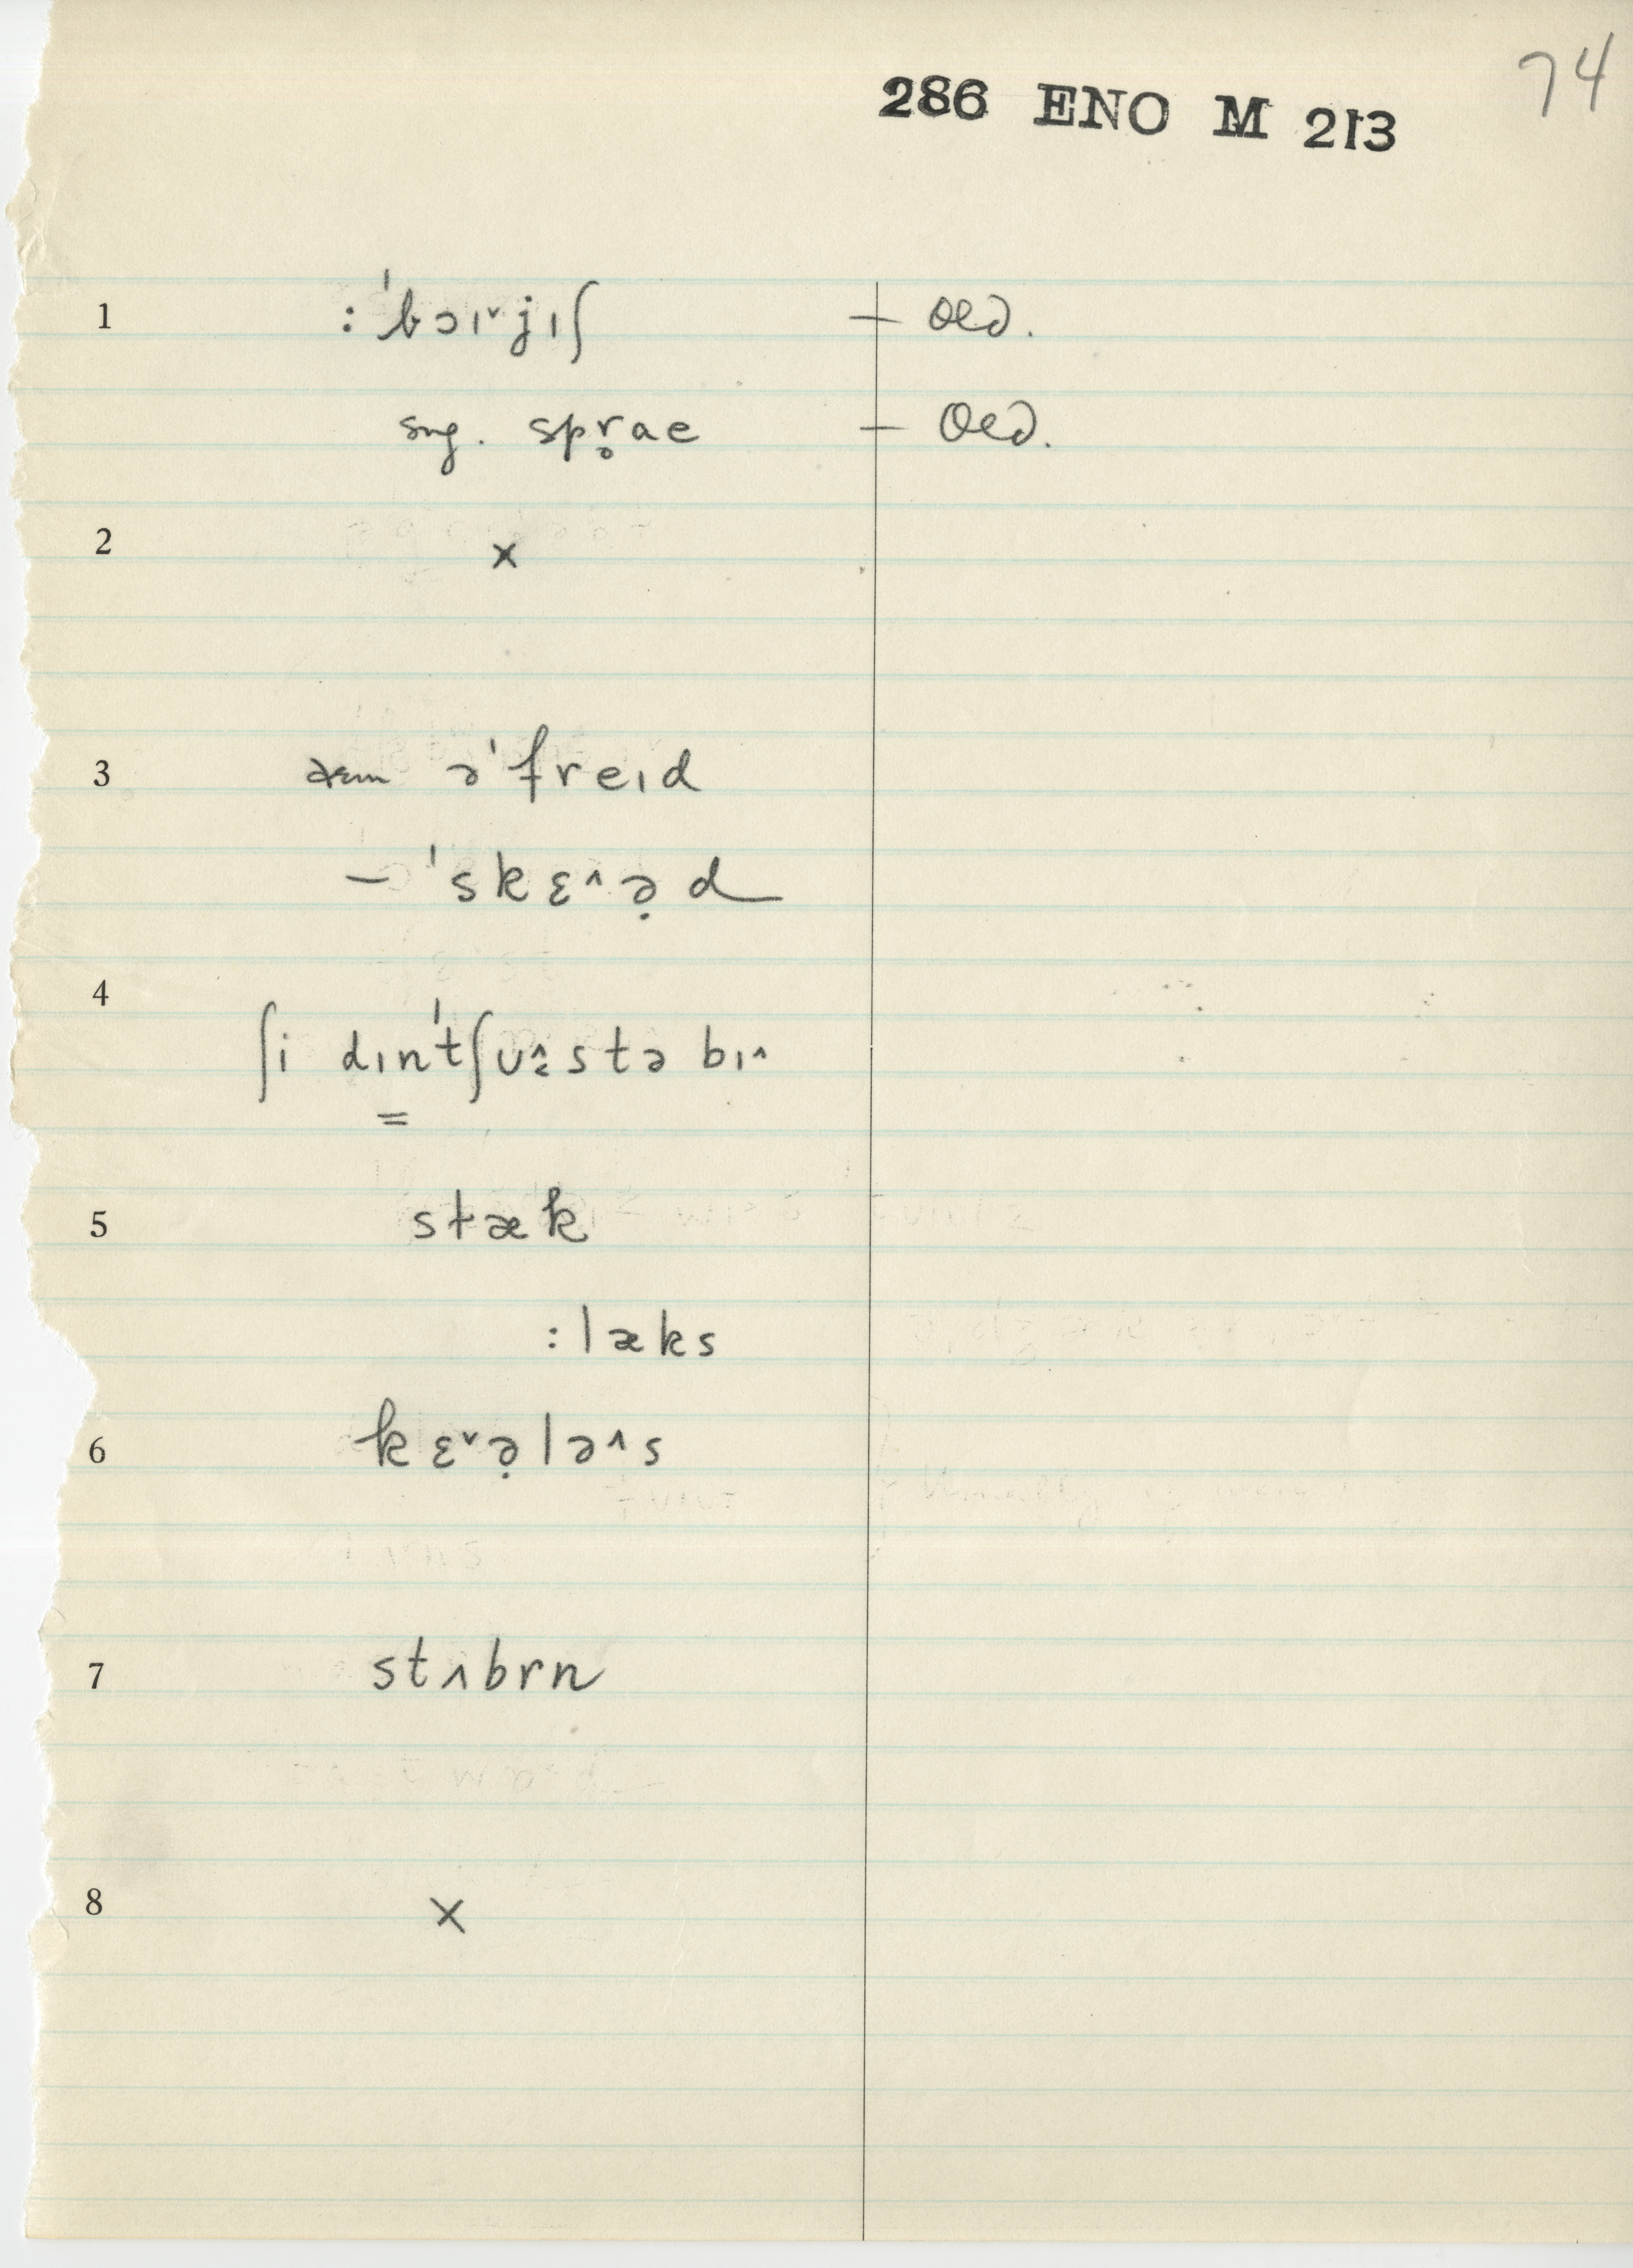 74
286 ENO M 213
1 : ˈbɔɪ˅jɪʃ — Old.
sng. spr̥ae — Old.
2 ×
3 əˈfreɪd
— ˈskɛ˄ə̣d
4
ʃi dɪn̳ˈtʃu stə bɪ˄
5 stæk
: læks
6 kɛ˅ə̣lə˄s
7 stʌbrn
8 ×